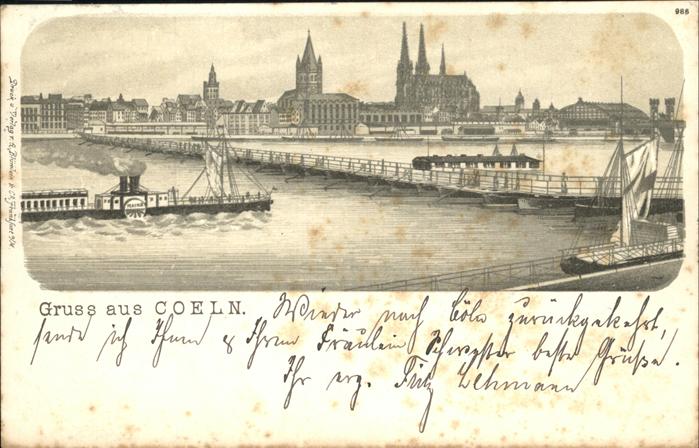 986
Gruss aus COELN.
Wieder nach Cöln zurückgekehrt,
sende ich Ihnen & Ihrem Fräulein Schwester beste Grüße.
Ihr erg. Fritz Lehmann
Druck u. Verlag v.